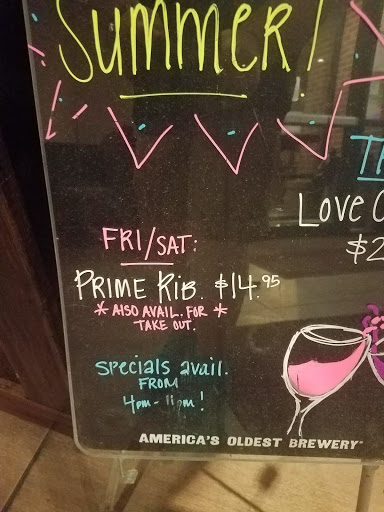 SUMMER!
TH
LOVE C
$2
FRI/SAT:
PRIME RIB. $14.95
* ALSO AVAIL. FOR *
TAKE OUT.
specials avail.
FROM
4pm - 11pm!
AMERICA'S OLDEST BREWERY